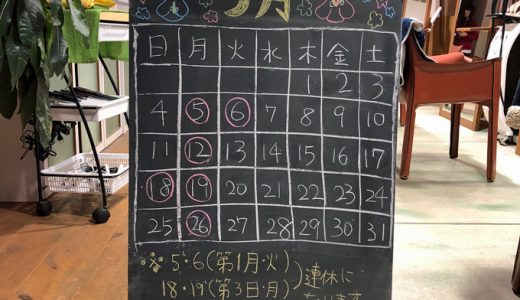 3月
日 月 火 水 木 金 土
1 2 3
4 5 6 7 8 9 10
11 12 13 14 15 16 17
18 19 20 21 22 23 24
25 26 27 28 29 30 31
※ 5・6(第1月・火)
連休に
18・19(第3日・月)
なります